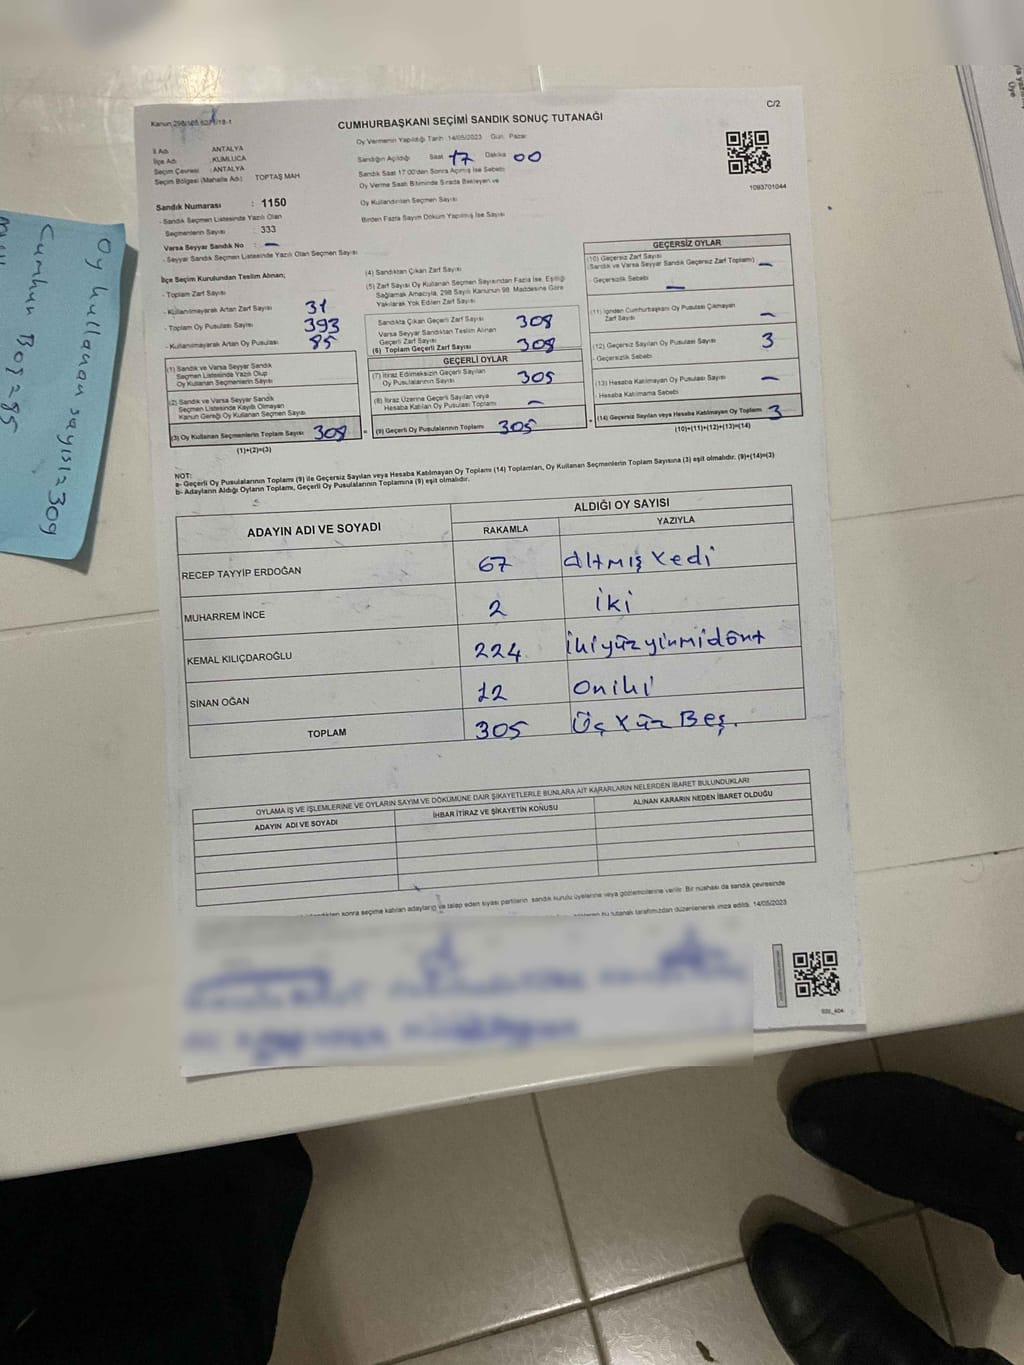 C/2
CUMHURBAŞKANI SEÇİMİ SANDIK SONUÇ TUTANAĞI
Oy Vermenin Yapıldığı Tarih :14/05/2023 Gün: Pazar
İl Adı : ANTALYA
İlçe Adı : KUMLUCA
Seçim Çevresi : ANTALYA
Seçim Bölgesi (Mahalle Adı) : TOPTAŞ MAH
Sandığın Açıldığı Saat 17 Dakika 00
Sandık Saat 17:00'den Sonra Açılmış İse Sebebi
Oy Verme Saati Bitiminde Sırada Bekleyen ve
Oy Kullandırılan Seçmen Sayısı
Birden Fazla Sayım Döküm Yapılmış İse Sayısı
1093701044
Sandık Numarası : 1150
- Sandık Seçmen Listesinde Yazılı Olan
Seçmenlerin Sayısı : 333
Varsa Seyyar Sandık No : –
- Seyyar Sandık Seçmen Listesinde Yazılı Olan Seçmen Sayısı
İlçe Seçim Kurulundan Teslim Alınan;
- Toplam Zarf Sayısı
- Kullanılmayarak Artan Zarf Sayısı 31
- Toplam Oy Pusulası Sayısı 393
- Kullanılmayarak Artan Oy Pusulası 85
(1) Sandık ve Varsa Seyyar Sandık
Seçmen Listesinde Yazılı Olup
Oy Kullanan Seçmenlerin Sayısı
(2) Sandık ve Varsa Seyyar Sandık
Seçmen Listesinde Kayıtlı Olmayan
Kanun Gereği Oy Kullanan Seçmen Sayısı
(3) Oy Kullanan Seçmenlerin Toplam Sayısı 308
(1)+(2)=(3)
(4) Sandıktan Çıkan Zarf Sayısı
(5) Zarf Sayısı Oy Kullanan Seçmen Sayısından Fazla İse, Eşitliği
Sağlamak Amacıyla, 298 Sayılı Kanunun 98. Maddesine Göre
Yakılarak Yok Edilen Zarf Sayısı
Sandıkta Çıkan Geçerli Zarf Sayısı 308
Varsa Seyyar Sandıktan Teslim Alınan
Geçerli Zarf Sayısı
(6) Toplam Geçerli Zarf Sayısı 308
GEÇERLİ OYLAR
(7) İtiraz Edilmeksizin Geçerli Sayılan
Oy Pusulalarının Sayısı 305
(8) İtiraz Üzerine Geçerli Sayılan veya
Hesaba Katılan Oy Pusulası Toplamı –
(9) Geçerli Oy Pusulalarının Toplamı 305
GEÇERSİZ OYLAR
(10) Geçersiz Zarf Sayısı
(Sandık ve Varsa Seyyar Sandık Geçersiz Zarf Toplamı) –
- Geçersizlik Sebebi –
(11) İçinden Cumhurbaşkanı Oy Pusulası Çıkmayan
Zarf Sayısı –
(12) Geçersiz Sayılan Oy Pusulası Sayısı 3
- Geçersizlik Sebebi
(13) Hesaba Katılmayan Oy Pusulası Sayısı –
- Hesaba Katılmama Sebebi
(14) Geçersiz Sayılan veya Hesaba Katılmayan Oy Toplamı 3
(10)+(11)+(12)+(13)=(14)
NOT:
a- Geçerli Oy Pusulalarının Toplamı (9) ile Geçersiz Sayılan veya Hesaba Katılmayan Oy Toplamı (14) Toplamları, Oy Kullanan Seçmenlerin Toplam Sayısına (3) eşit olmalıdır. (9)+(14)=(3)
b- Adayların Aldığı Oyların Toplamı, Geçerli Oy Pusulalarının Toplamına (9) eşit olmalıdır.
ADAYIN ADI VE SOYADI
ALDIĞI OY SAYISI
RAKAMLA YAZIYLA
RECEP TAYYİP ERDOĞAN 67 altmış Yedi
MUHARREM İNCE 2 iki
KEMAL KILIÇDAROĞLU 224 ikiyüzyirmidört
SİNAN OĞAN 12 oniki
TOPLAM 305 Üç Yüz Beş.
OYLAMA İŞ VE İŞLEMLERİNE VE OYLARIN SAYIM VE DÖKÜMÜNE DAİR ŞİKAYETLERLE BUNLARA AİT KARARLARIN NELERDEN İBARET BULUNDUKLARI
ADAYIN ADI VE SOYADI
İHBAR İTİRAZ VE ŞİKAYETİN KONUSU
ALINAN KARARIN NEDEN İBARET OLDUĞU
sonra seçime katılan adayların ve talep eden siyasi partilerin sandık kurulu üyelerine veya gözlemcilerine verilir. Bir nüshası da sandık çevresinde
bu tutanak tarafımızdan düzenlenerek imza edildi. 14/05/2023
Oy kullanan sayısı = 309
Cumhur Boş = 85